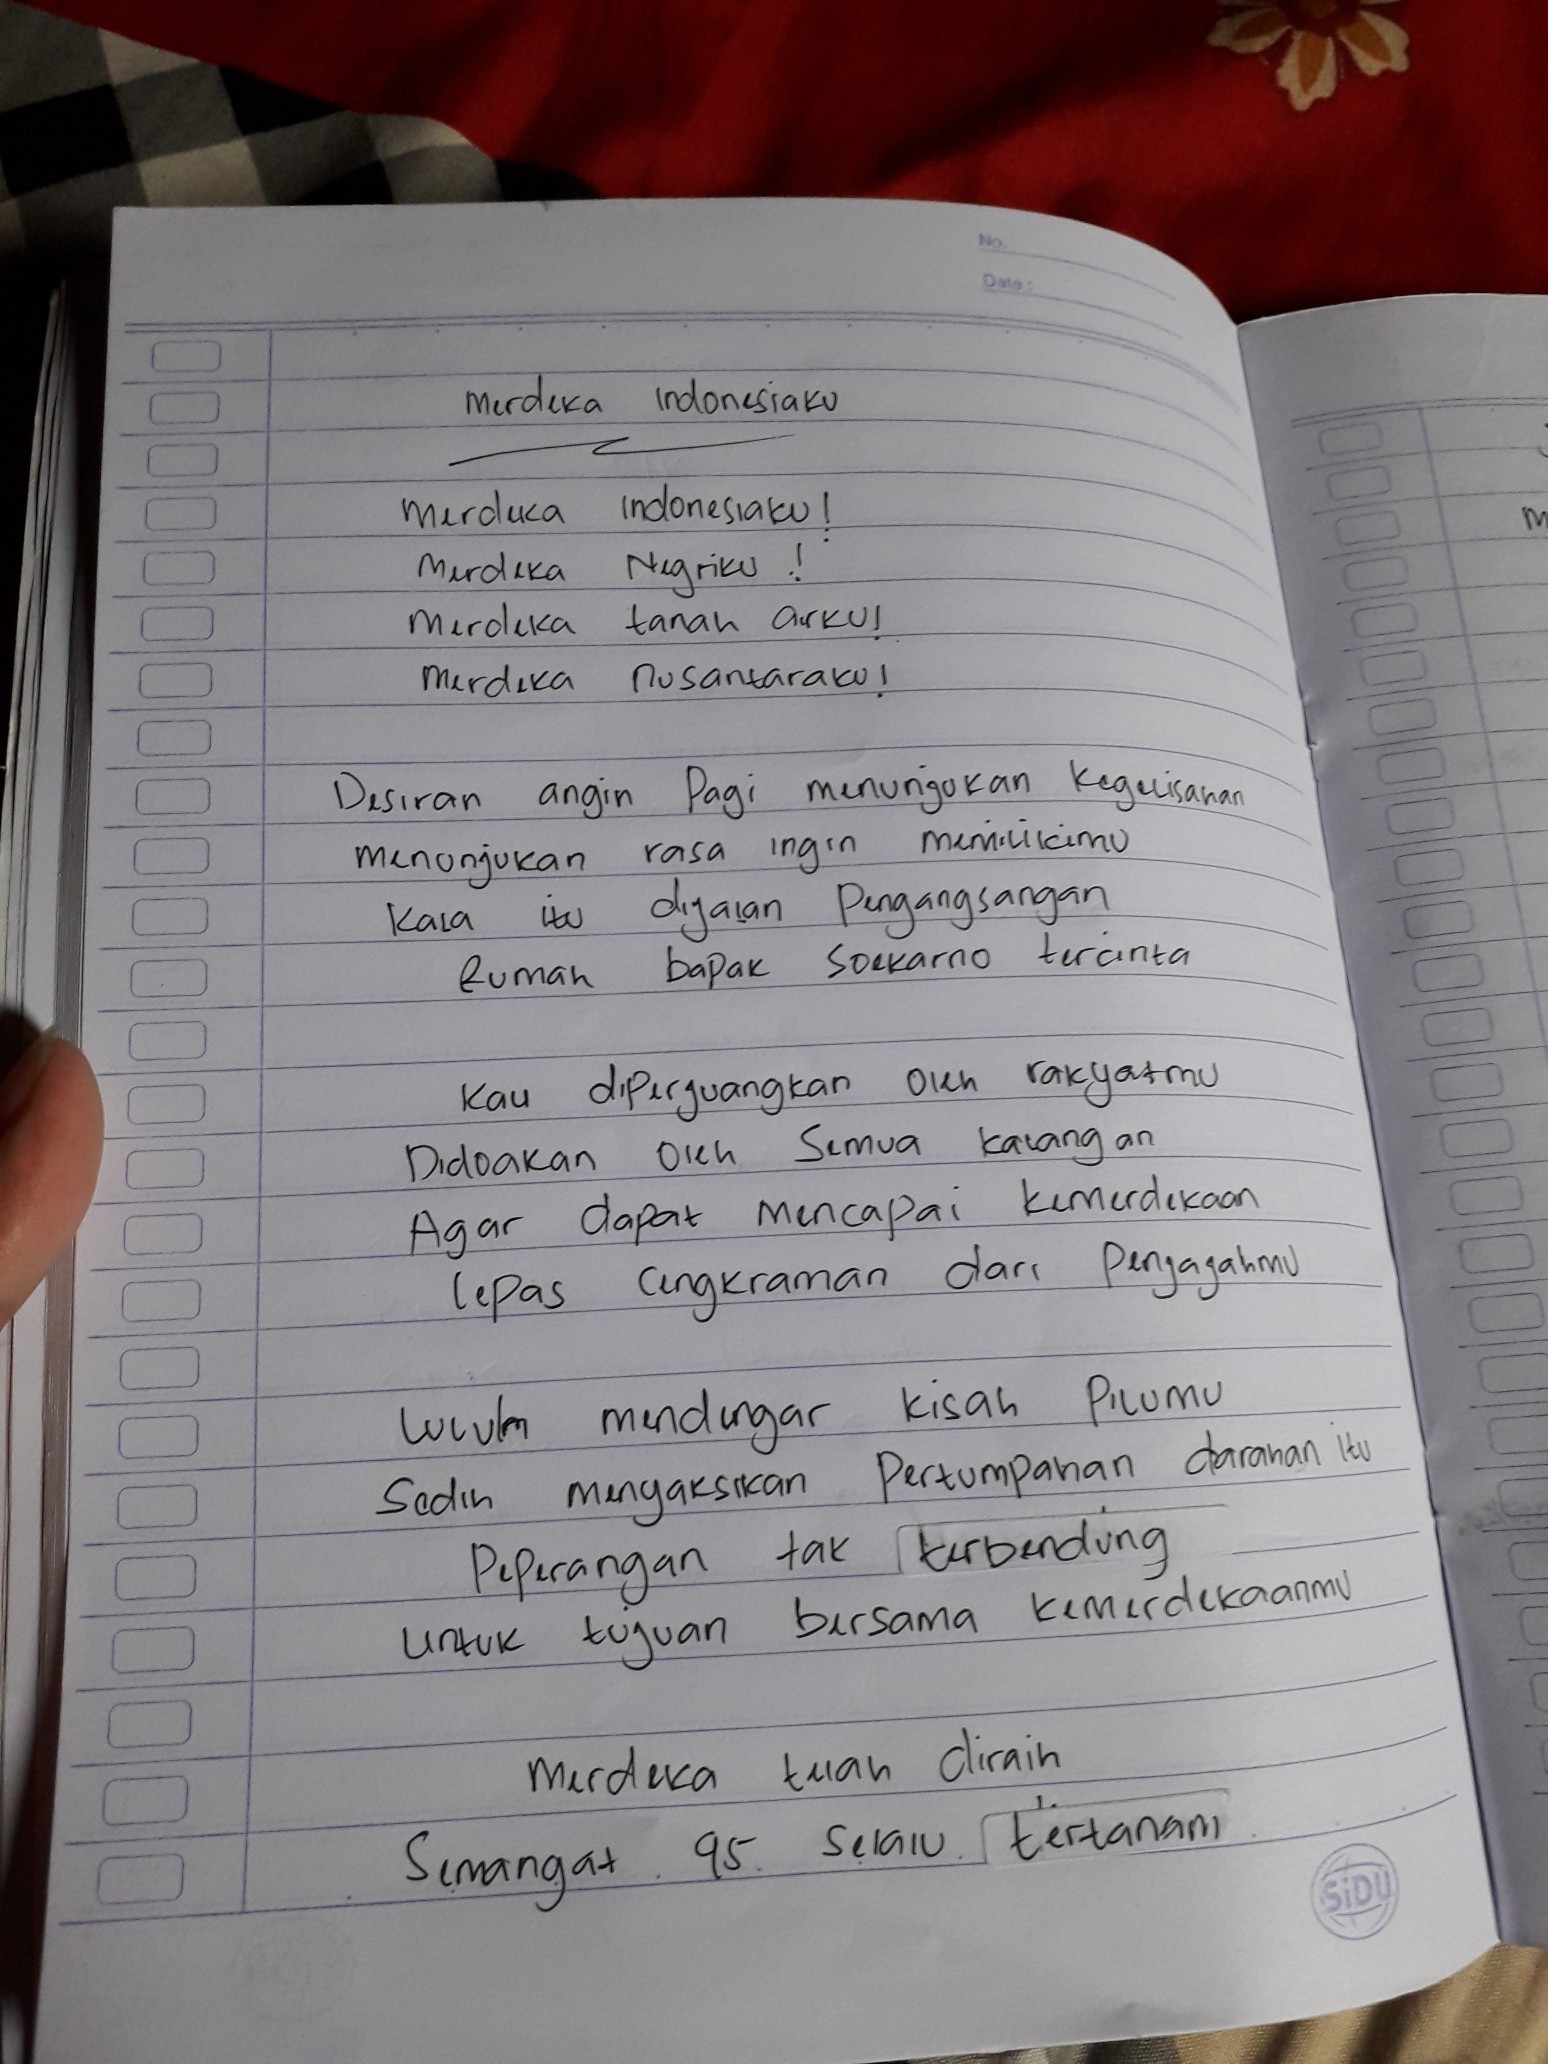 No.
Date:
Merdeka Indonesiaku
Merdeka Indonesiaku!
Merdeka Negriku!
Merdeka tanah airku!
Merdeka Nusantaraku!
Desiran angin Pagi menunjukan kegelisahan
menunjukan rasa ingin memilikimu
Kala itu dijalan Pengangsangan
Rumah bapak Soekarno tercinta
Kau diperjuangkan oleh rakyatmu
Didoakan oleh Semua kalangan
Agar dapat mencapai kemerdekaan
lepas cengkraman dari Penjajahmu
Luluh mendengar kisah Pilumu
Sedih menyaksikan Pertumpahan darahan itu
Peperangan tak terbendung
Untuk tujuan bersama kemerdekaanmu
Merdeka telah diraih
Semangat 95 Selalu tertanam
SiDU